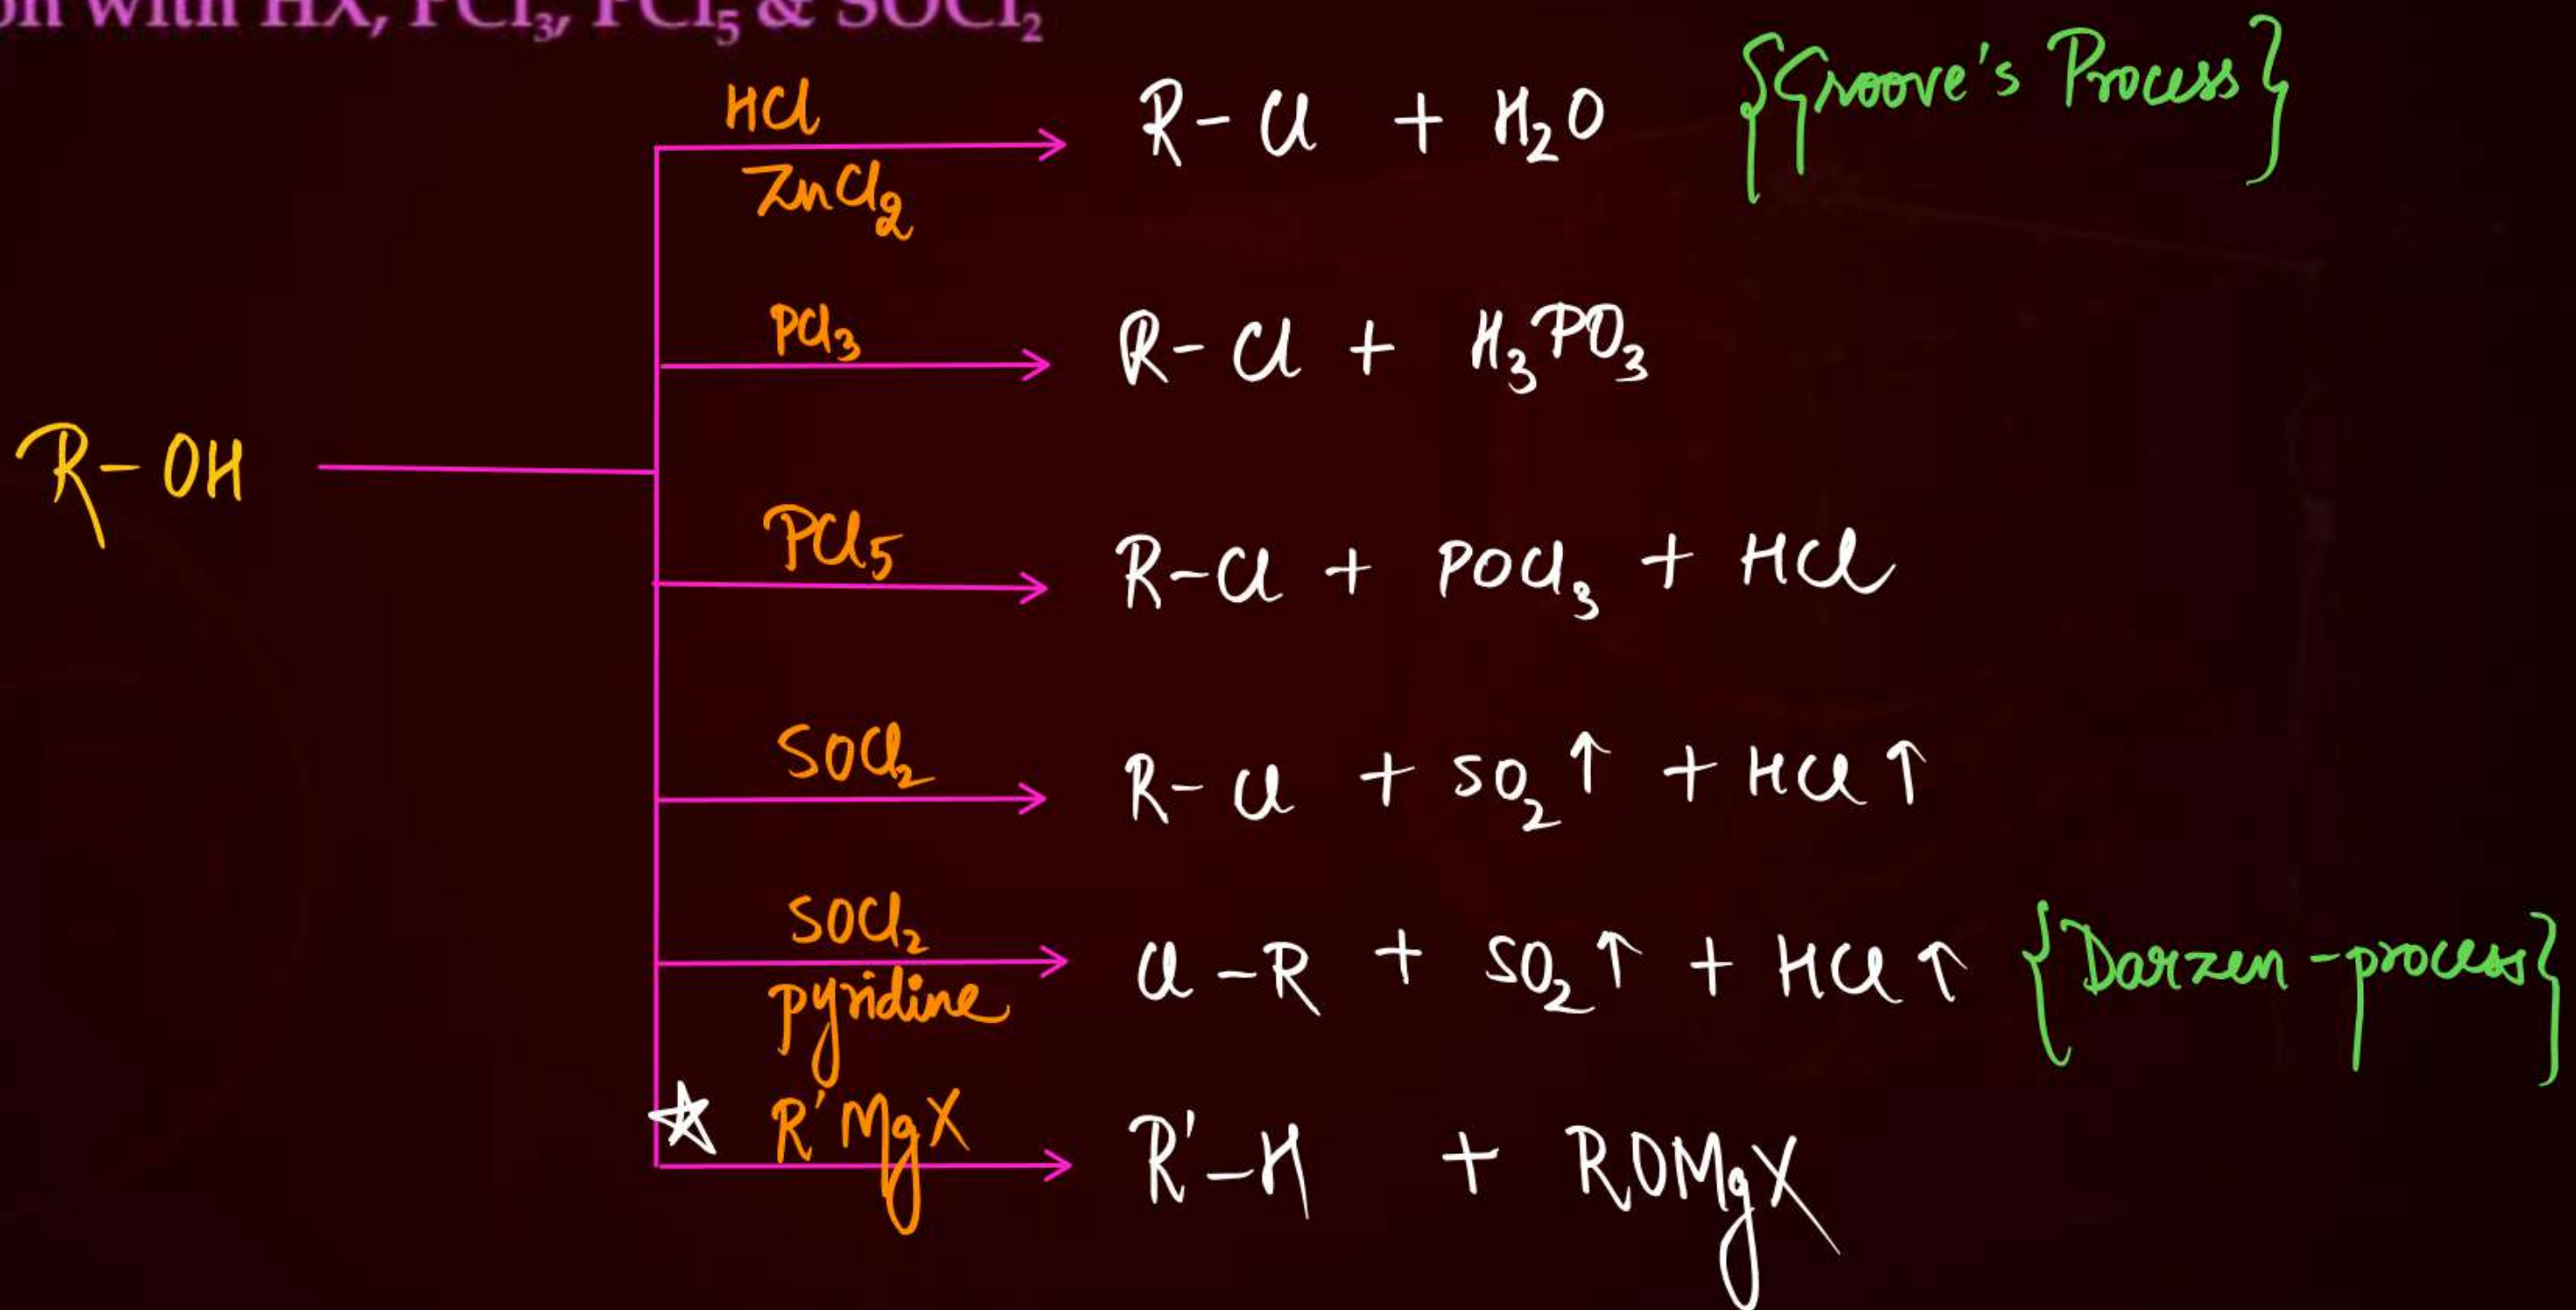 on with HX, PCl₃, PCl₅ & SOCl₂
HCl
ZnCl₂
R-Cl + H₂O {Groove's Process}
PCl₃
R-Cl + H₃PO₃
R-OH
PCl₅
R-Cl + POCl₃ + HCl
SOCl₂
R-Cl + SO₂↑ + HCl↑
SOCl₂
pyridine
Cl-R + SO₂↑ + HCl↑ {Darzen-process}
☆ R'MgX
R'-H + ROMgX